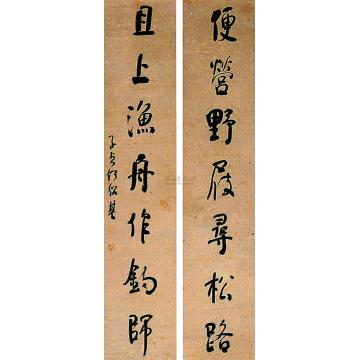 便營野屐尋松路
且上漁舟作釣師
子貞何紹基